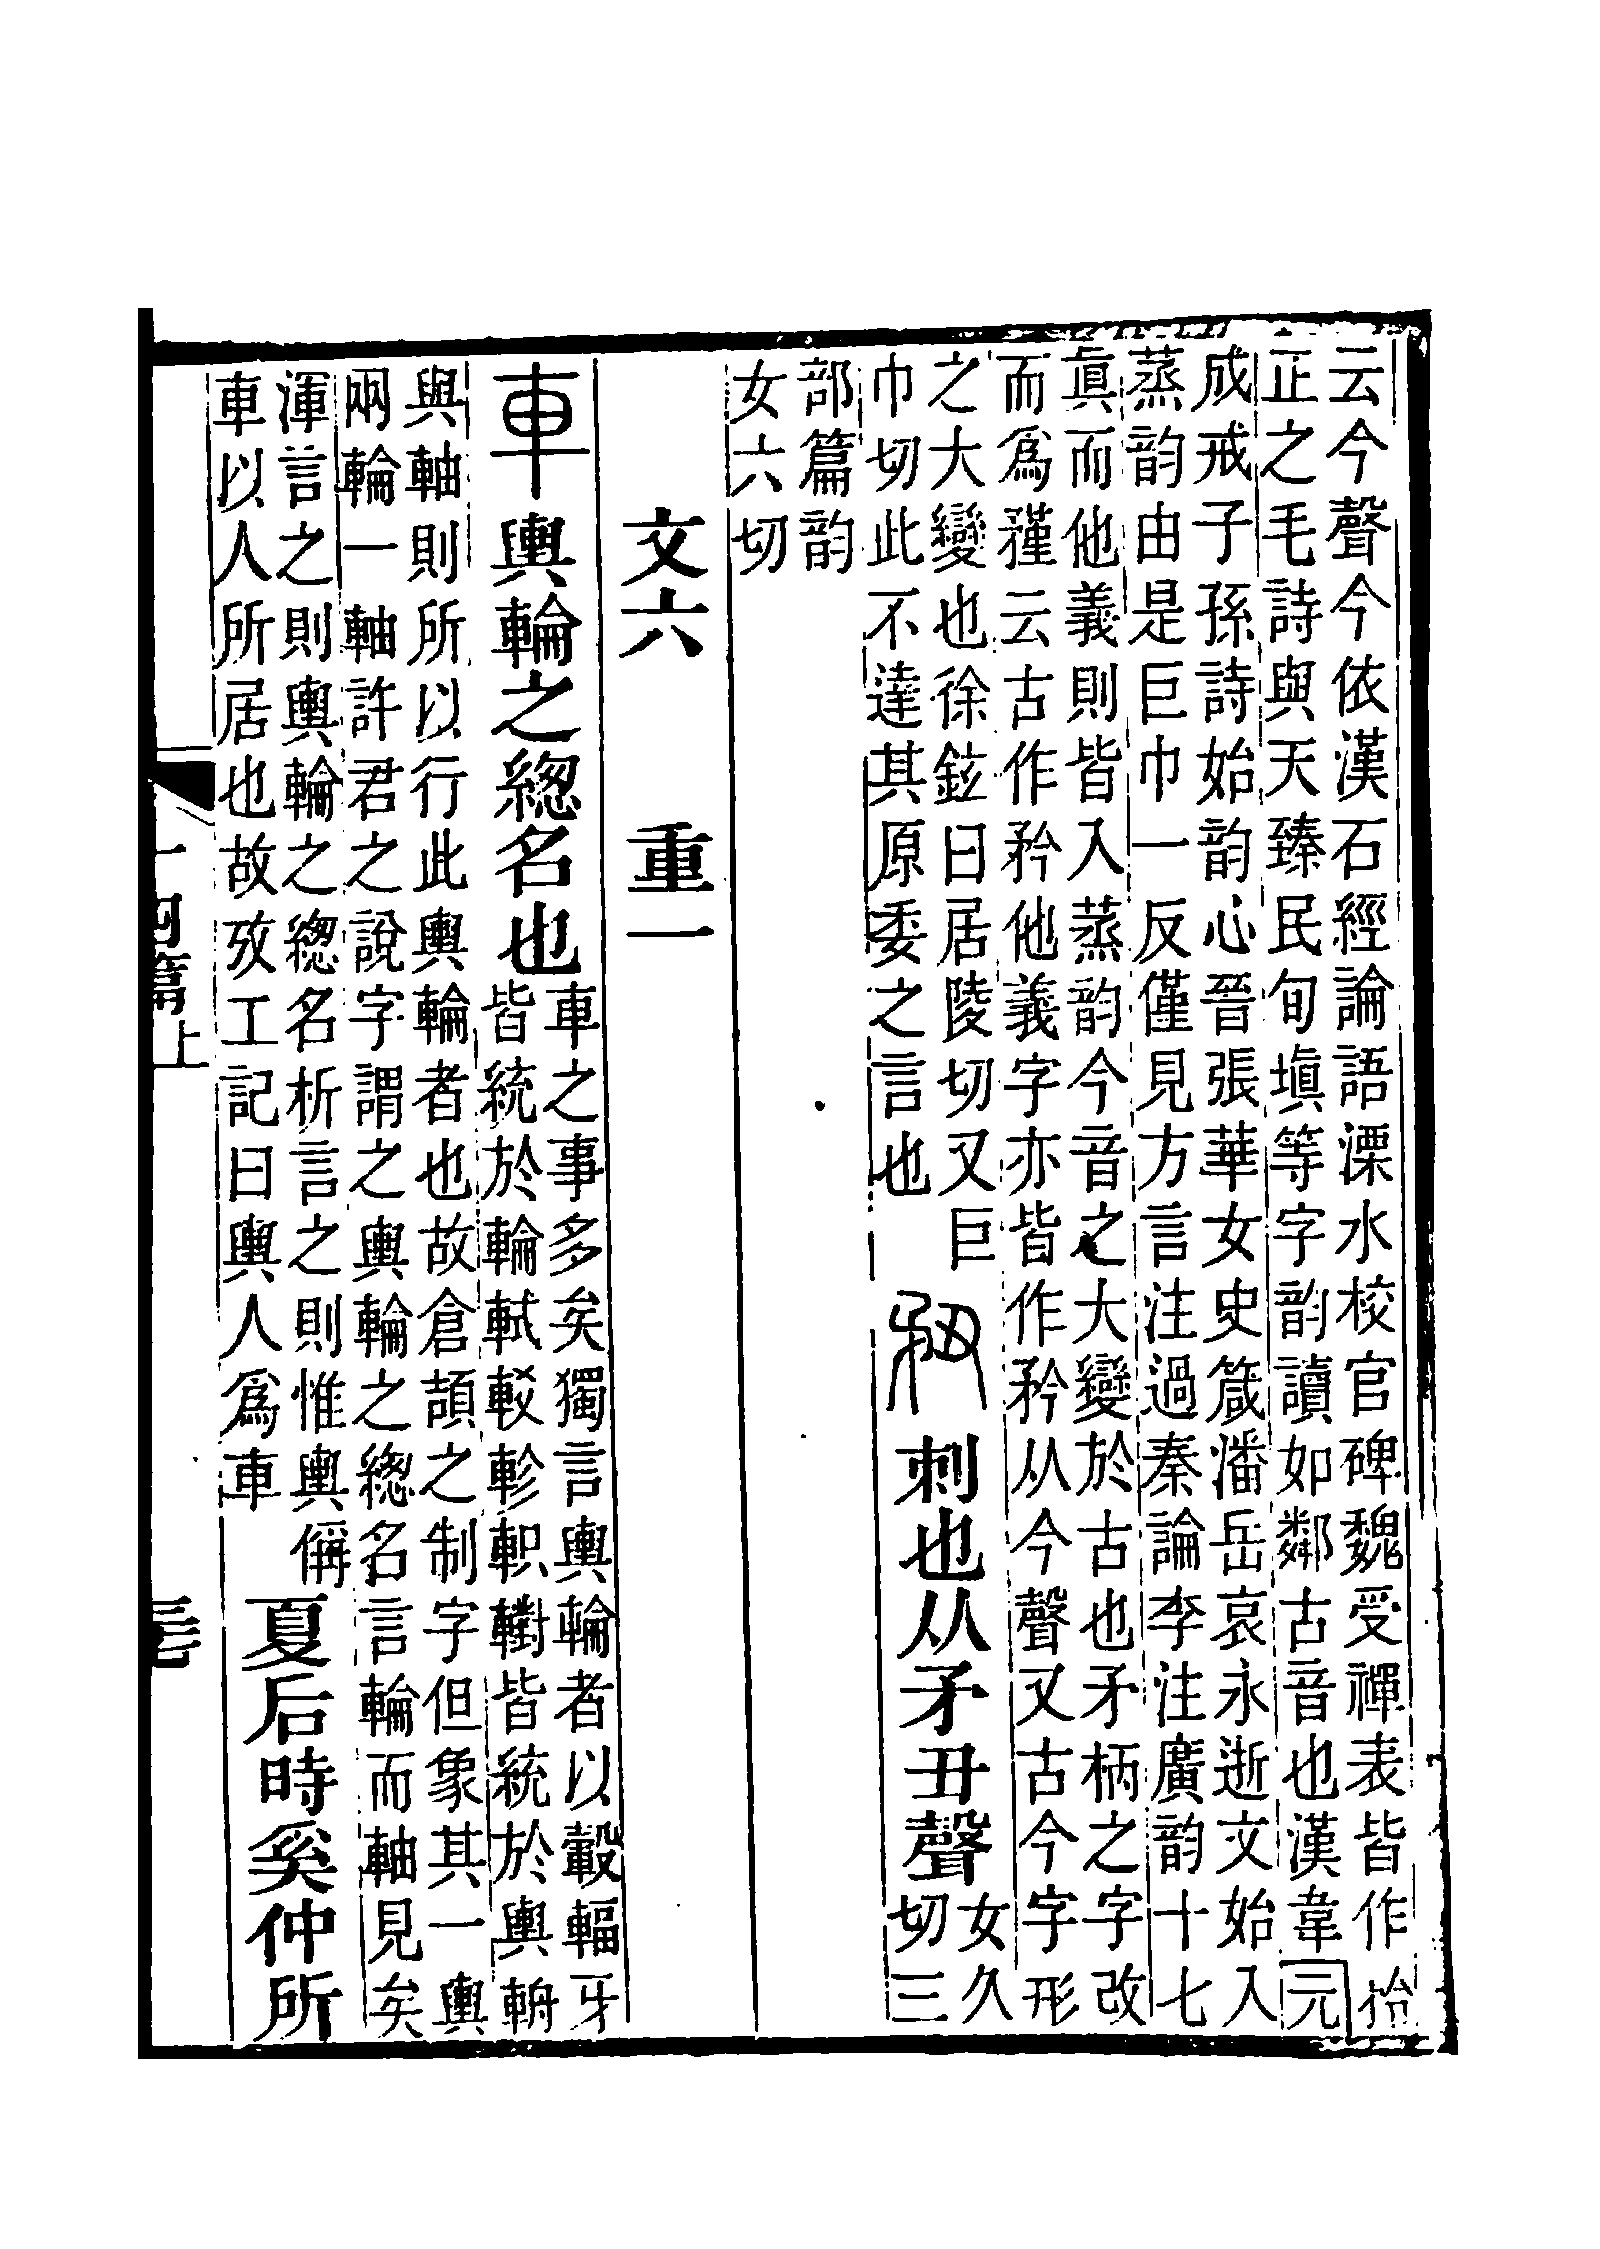 云今聲今依漢石經論語溧水校官碑魏受禪表皆作矝
正之毛詩與天臻民旬塡等字韵讀如鄰古音也漢韋元
成戒子孫詩始韵心晉張華女史箴潘岳哀永逝文始入
蒸韵由是巨巾一反僅見方言注過秦論李注廣韵十七
眞而他義則皆入蒸韵今音之大變於古也矛柄之字改
而爲𥎊云古作矜他義字亦皆作矜从今聲又古今字形
之大變也徐鉉曰居陵切又巨
巾切此不達其原委之言也
𥍟 刺也从矛丑聲
女久
切三
部篇韵
女六切
文六 重一
車 輿輪之緫名也
車之事多矣獨言輿輪者以轂輻牙
皆統於輪軾較軫軹轛皆統於輿輈
與軸則所以行此輿輪者也故倉頡之制字但象其一輿
兩輪一軸許君之說字謂之輿輪之緫名言輪而軸見矣
渾言之則輿輪之緫名析言之則惟輿偁
車以人所居也故攷工記曰輿人爲車
夏后時奚仲所
十四篇上